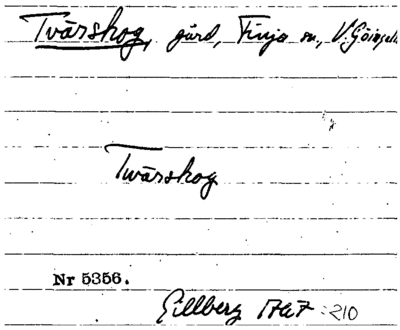 Tvärskog, gård, Finja sn., V. Göinge
Tvärskog
Nr 5356.
Gillberg 1767 :210